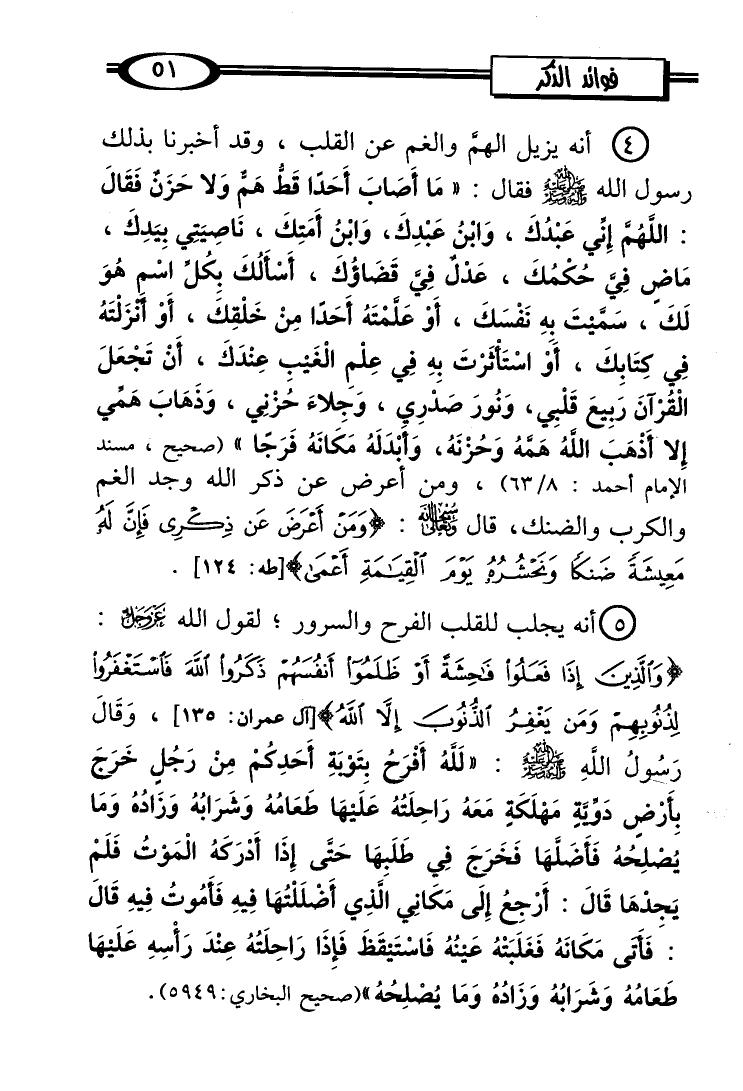 فوائد الذكر ٥١
٤ أنه يزيل الهمَّ والغم عن القلب ، وقد أخبرنا بذلك
رسول الله ﷺ فقال : « مَا أَصَابَ أَحَدًا قَطُّ هَمٌّ وَلَا حَزَنٌ فَقَالَ
: اللَّهُمَّ إِنِّي عَبْدُكَ ، وَابْنُ عَبْدِكَ، وَابْنُ أَمَتِكَ ، نَاصِيَتِي بِيَدِكَ ،
مَاضٍ فِيَّ حُكْمُكَ ، عَدْلٌ فِيَّ قَضَاؤُكَ ، أَسْأَلُكَ بِكُلِّ اسْمٍ هُوَ
لَكَ ، سَمَّيْتَ بِهِ نَفْسَكَ ، أَوْ عَلَّمْتَهُ أَحَدًا مِنْ خَلْقِكَ ، أَوْ أَنْزَلْتَهُ
فِي كِتَابِكَ ، أَوْ اسْتَأْثَرْتَ بِهِ فِي عِلْمِ الْغَيْبِ عِنْدَكَ ، أَنْ تَجْعَلَ
الْقُرْآنَ رَبِيعَ قَلْبِي، وَنُورَ صَدْرِي ، وَجِلَاءَ حُزْنِي ، وَذَهَابَ هَمِّي
إِلا أَذْهَبَ اللَّهُ هَمَّهُ وَحُزْنَهُ، وَأَبْدَلَهُ مَكَانَهُ فَرَجًا » (صحيح ، مسند
الإمام أحمد : ٦٣/٨) ، ومن أعرض عن ذكر الله وجد الغم
والكرب والضنك، قال سُبْحَانَهُ وَتَعَالَى : ﴿وَمَنْ أَعْرَضَ عَن ذِكْرِى فَإِنَّ لَهُۥ
مَعِيشَةً ضَنكًا وَنَحْشُرُهُۥ يَوْمَ ٱلْقِيَٰمَةِ أَعْمَىٰ﴾[طه: ١٢٤] .
٥ أنه يجلب للقلب الفرح والسرور ؛ لقول الله عَزَّوَجَلَّ :
﴿وَٱلَّذِينَ إِذَا فَعَلُوا۟ فَٰحِشَةً أَوْ ظَلَمُوٓا۟ أَنفُسَهُمْ ذَكَرُوا۟ ٱللَّهَ فَٱسْتَغْفَرُوا۟
لِذُنُوبِهِمْ وَمَن يَغْفِرُ ٱلذُّنُوبَ إِلَّا ٱللَّهُ﴾[آل عمران: ١٣٥] ، وَقَالَ
رَسُولُ اللَّهِ ﷺ : «لَلَّهُ أَفْرَحُ بِتَوْبَةِ أَحَدِكُمْ مِنْ رَجُلٍ خَرَجَ
بِأَرْضٍ دَوِّيَّةٍ مَهْلَكَةٍ مَعَهُ رَاحِلَتُهُ عَلَيْهَا طَعَامُهُ وَشَرَابُهُ وَزَادُهُ وَمَا
يُصْلِحُهُ فَأَضَلَّهَا فَخَرَجَ فِي طَلَبِهَا حَتَّى إِذَا أَدْرَكَهُ الْمَوْتُ فَلَمْ
يَجِدْهَا قَالَ : أَرْجِعُ إِلَى مَكَانِي الَّذِي أَضْلَلْتُهَا فِيهِ فَأَمُوتُ فِيهِ قَالَ
: فَأَتَى مَكَانَهُ فَغَلَبَتْهُ عَيْنُهُ فَاسْتَيْقَظَ فَإِذَا رَاحِلَتُهُ عِنْدَ رَأْسِهِ عَلَيْهَا
طَعَامُهُ وَشَرَابُهُ وَزَادُهُ وَمَا يُصْلِحُهُ»(صحيح البخاري:٥٩٤٩).